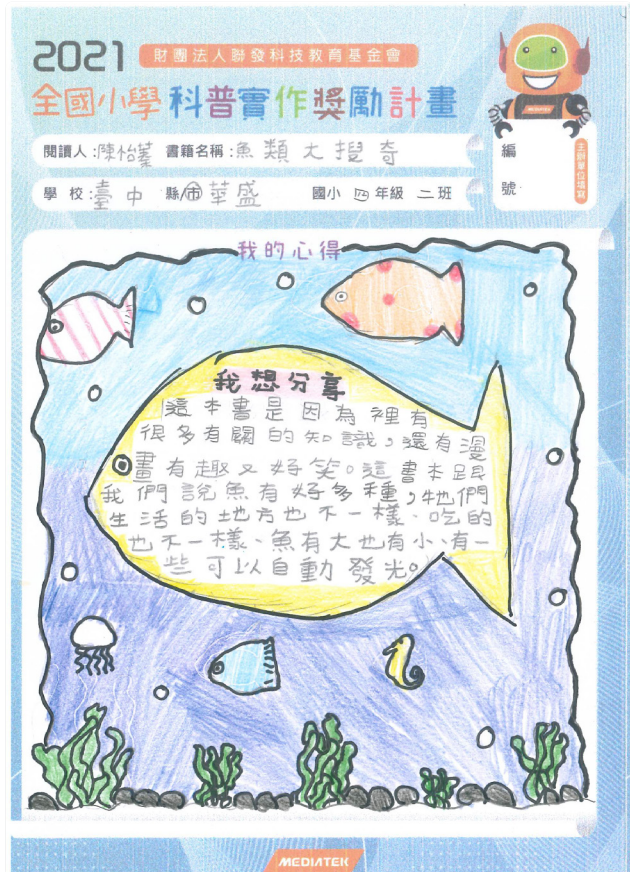 2021 財團法人聯發科技教育基金會
全國小學科普實作獎勵計畫
MEDIATEK
閱讀人:陳怡蓁 書籍名稱:魚類大揑奇
編號
主辦單位填寫
學校:臺中 縣/市 華盛 國小 四年級 二班
我的心得
我想分享
這本書是因為裡有
很多有關的知識,還有漫
畫有趣又好笑。這書本跟
我們說魚有好多種,牠們
生活的地方也不一樣、吃的
也不一樣、魚有大也有小、有一
些可以自動發光。
MEDIATEK